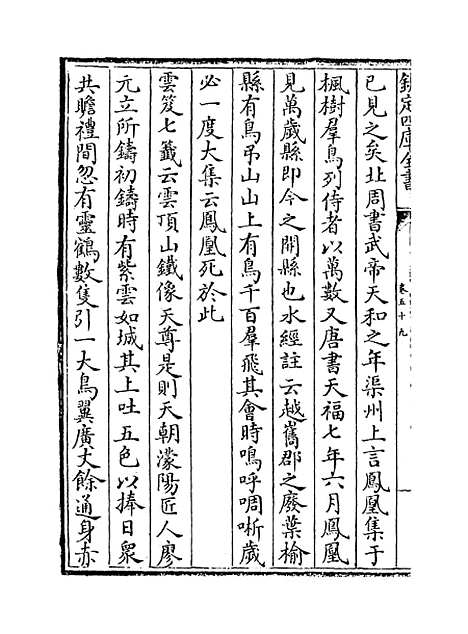 欽定四庫全書
卷五十九
已見之矣北周書武帝天和之年渠州上言鳳凰集于
楓樹羣鳥列侍者以萬數又唐書天福七年六月鳳凰
見萬歲縣即今之開縣也水經註云越嶲郡之廢葉榆
縣有鳥弔山山上有鳥千百羣飛其會時鳴呼啁哳歲
必一度大集云鳳凰死於此
雲笈七籤云雲頂山鐵像天尊是則天朝濛陽匠人廖
元立所鑄初鑄時有紫雲如城其上吐五色以捧日衆
共瞻禮間忽有靈鶴數隻引一大鳥翼廣丈餘通身赤